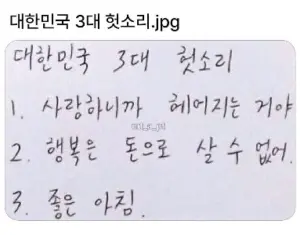 대한민국 3대 헛소리.jpg
대한민국 3대 헛소리
1. 사랑하니까 헤어지는 거야
2. 행복은 돈으로 살 수 없어.
3. 좋은 아침.